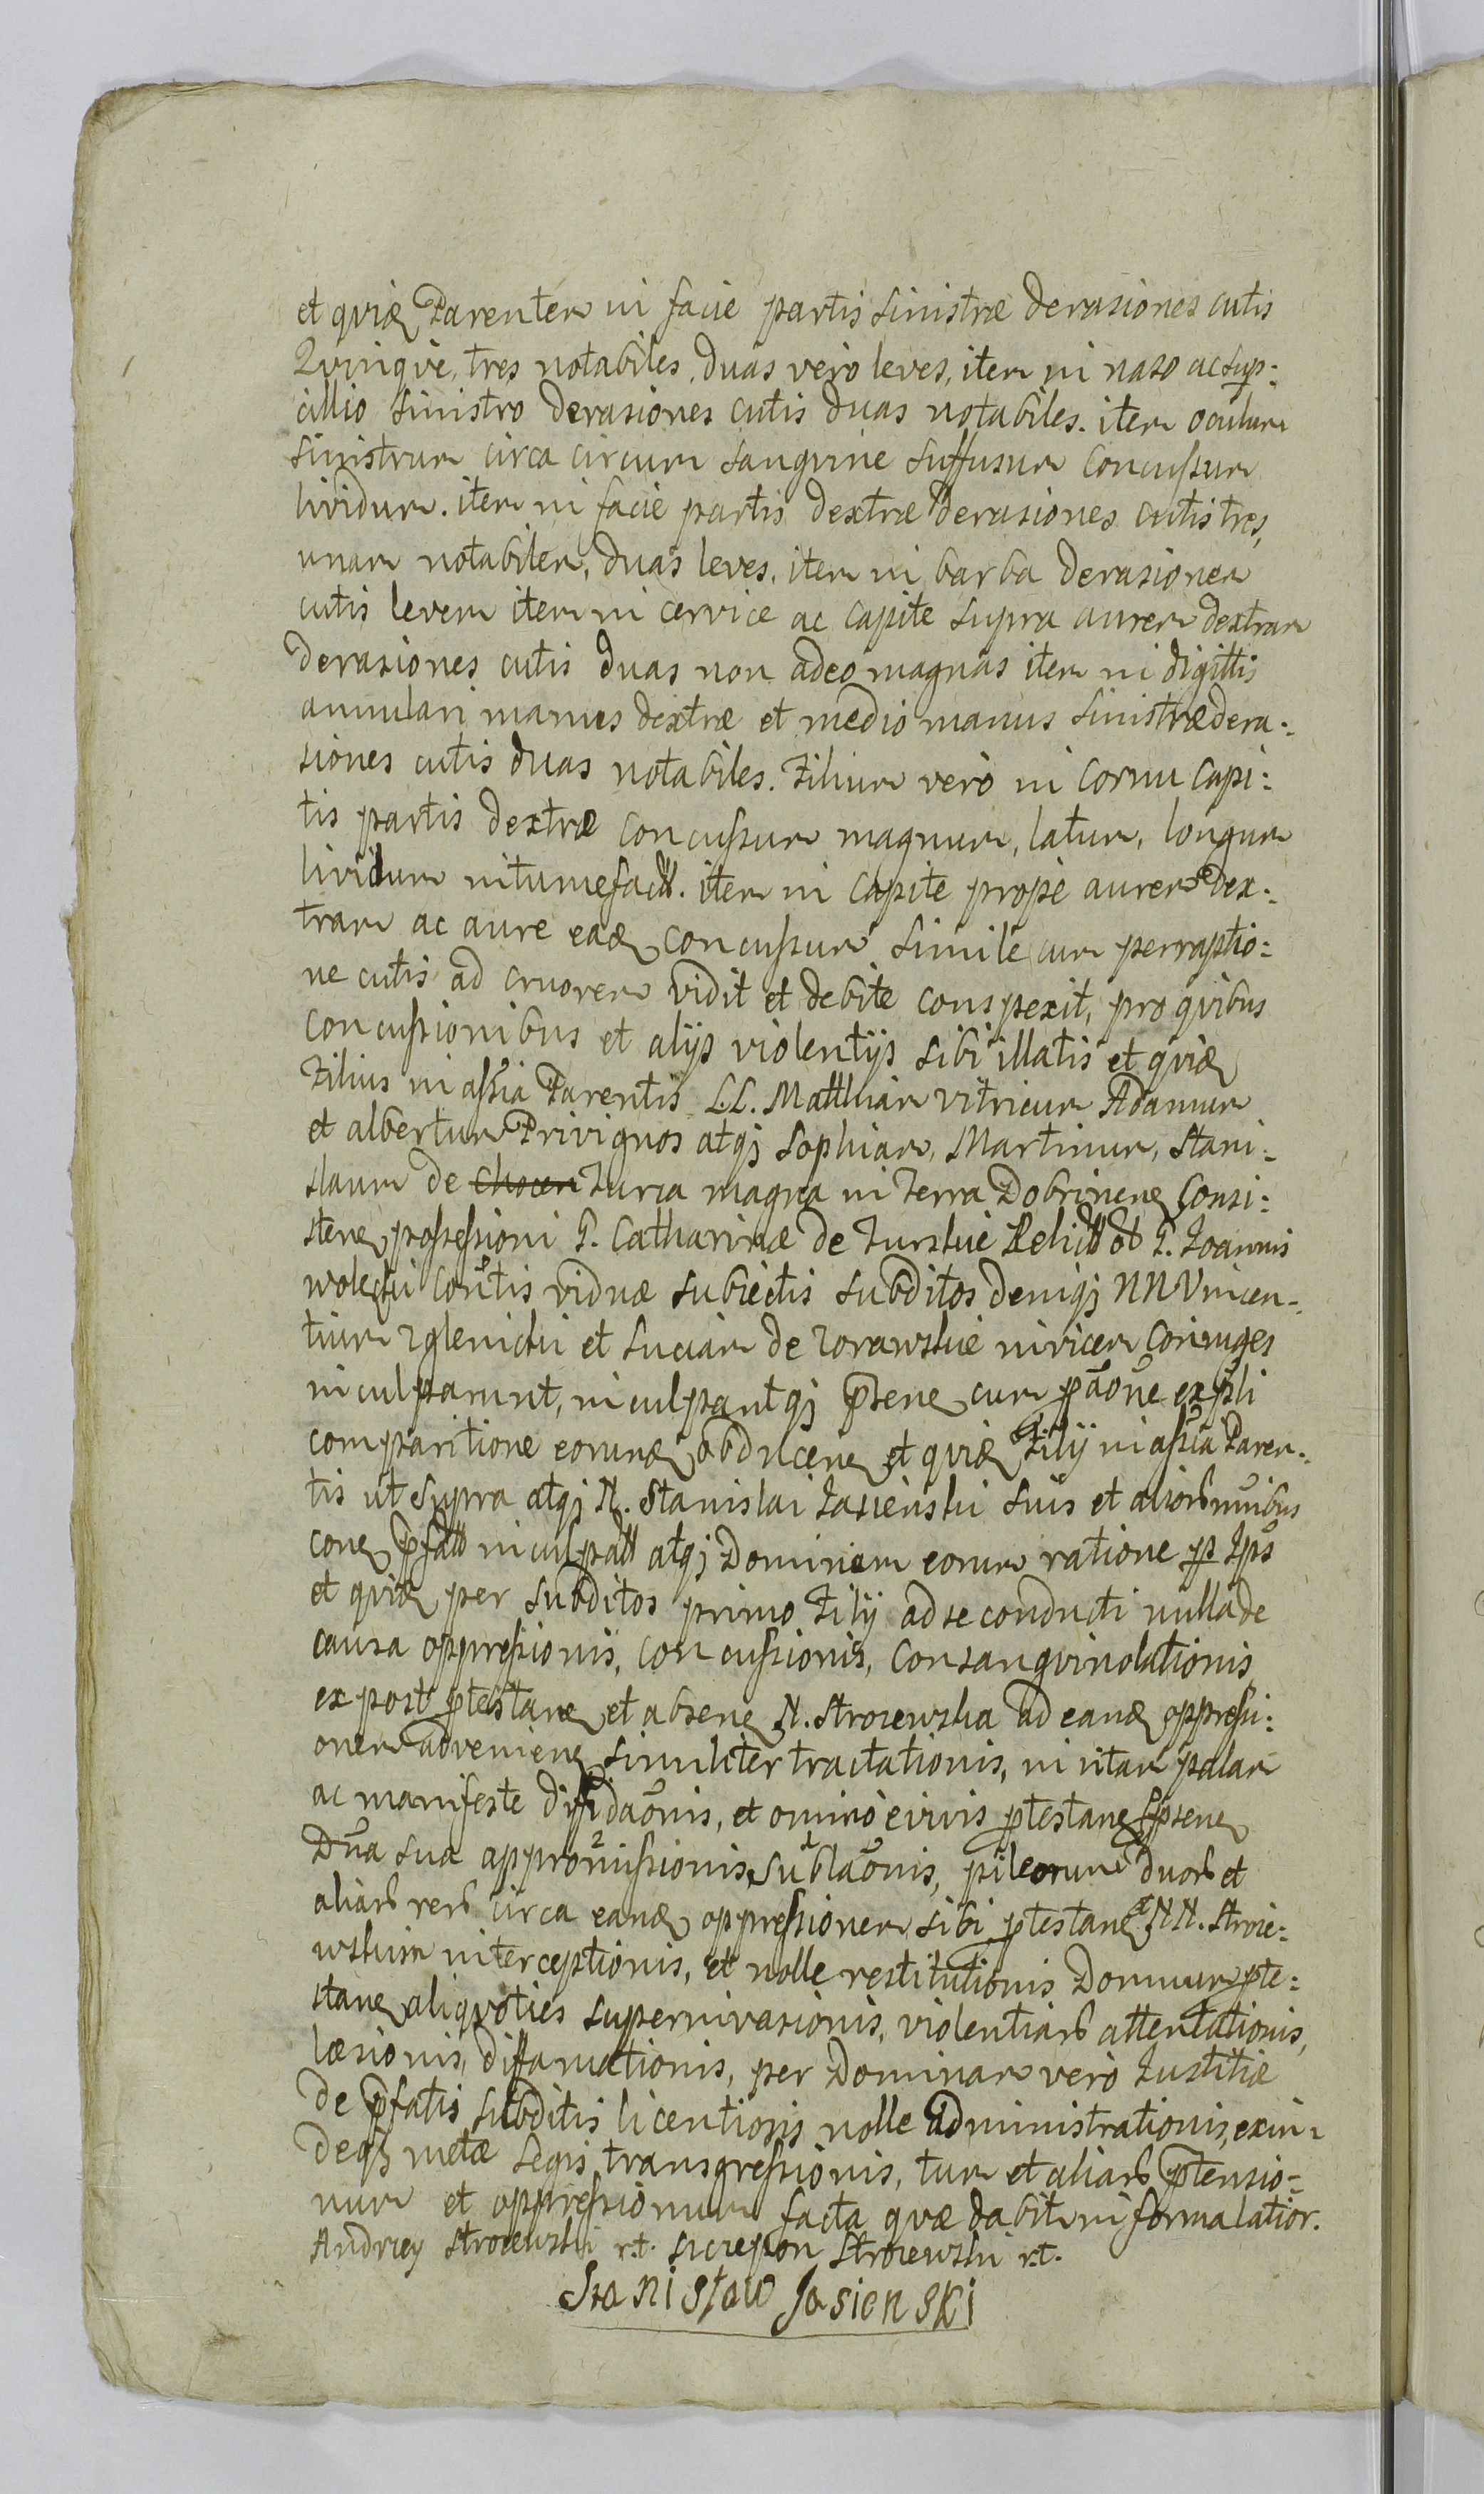 et qviꝫ Parentem in facie partis sinistræ derasiones cutis
Qvinqve, tres notabiles, duas vero leves, item in naso ac sup:
cillio sinistro derasiones cutis duas notabiles. item oculum
sinistrum circa circum sangvine suffusum concussum
lividum. item in facie partis dextræ derasiones cutis tres,
unam notabilem, duas leves, item in barba derasionem
cutis levem item in cervice ac capite supra aurem dextram
derasiones cutis duas non adeo magnas item in digittis
annulari manus dextræ et medio manus sinistræ dera:
siones cutis duas notabiles. Filium vero in cornu capi:
tis partis dextræ concussum magnum, latum, longum
lividum intumefactt. item in capite prope aurem dex:
tram ac aure eadꝫ concussum simile cum perraptio:
ne cutis ad cruorem vidit et debite conspexit, pro qvibus
concussionibus et alijs violentijs sibi illatis et qviꝫ
Filius in assia Parentis L.L. Matthiam vitricum Adamum
et albertum Privignos atqꝫ Sophiam, Martinum, Stani:
slaum de Chocen Turza magna in Terra Dobrinenꝫ Consi:
stenꝫ possessioni G. Catharinæ de Turskie Relictt olt G. Joannis
wolecki Contis viduæ subiectis subditos deniqꝫ NN Vincen:
tium Zglenicki et Luciam de Zorawskie invicem Coniuges
inculparunt, inculpantqꝫ pꝛsenꝫ cum pꝛaone expli
comparitione eorundꝫ obducenꝫ et qviꝫ Filij in assia Paren:
tis ut supra atqꝫ N. Stanislai Jasienski suis et aliorꝫ nnibus
conꝫ pꝛfatt inculpatt atqꝫ Dominam eorum ratione p Ips
et qviꝫ per subditos primo Filij ad se conducti nulla de
causa oppressionis, concussionis, consangvinolationis,
ex post ptestanꝫ et absenꝫ N. Strozewska ad eandꝫ oppressi:
onem advenienꝫ similiter tractationis, in vitam palam
ac manifeste diffidaonis, et omino eivis ptestanꝫ pꝛsenꝫ
Dna sua appromissionis, sublaonis, pileorum duorꝫ et
aliarꝫ rerꝫ circa eandꝫ oppressionem sibi ptestanꝫ et NN. Stroze:
wskim interceptionis, et nolle restitutionis Domum pte:
stanꝫ aliqvoties superinvasionis, violentiarꝫ attentationis,
læsionis, diffamationis, per Dominam vero Justitiæ
de pꝛfatis subditis licentiosis nolle administrationis, exin:
deqꝫ metæ Legis transgressionis, tum et aliarꝫ ptensio:
num et oppressionum facta qvæ dabitur in forma latior.
Andrzey Strozewski r.t. szczepon Strozewski r.t.
Stanisław Jasienski